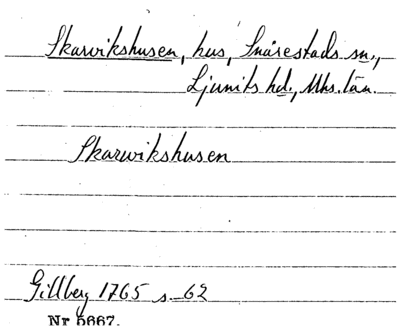 Skarvikshusen, hus, Snårestads sn.,
Ljunits hd., Mhs. län.
Skarwikshusen
Gillberg 1765 s. 62
Nr 5667.